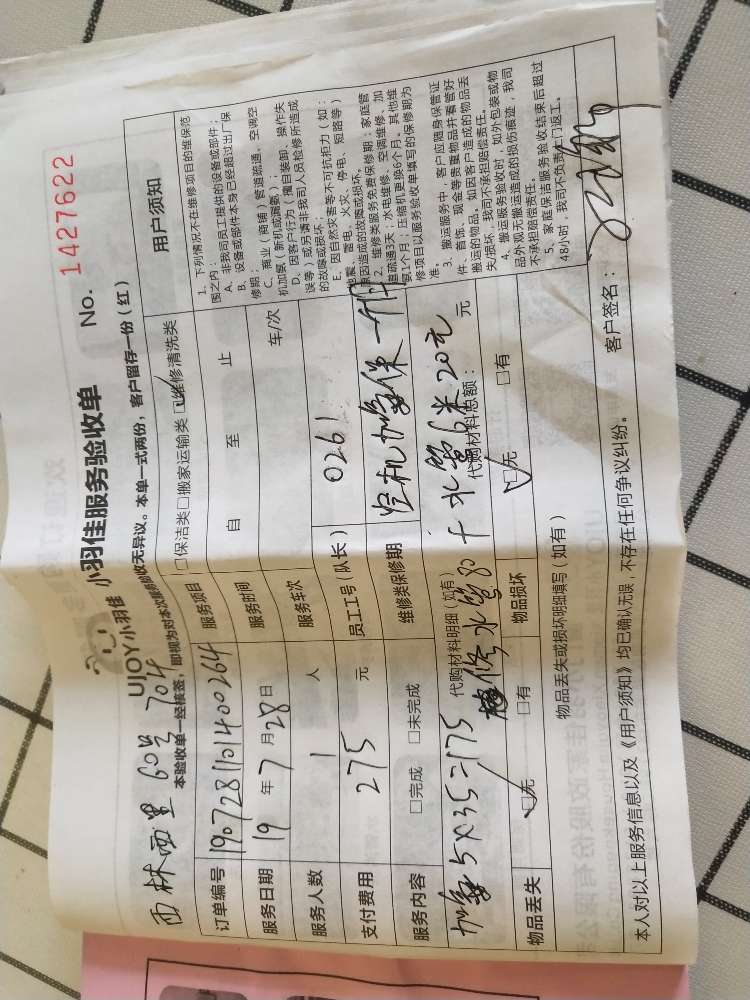 西林西里 60号 704
UJOY小羽佳
小羽佳服务验收单 No. 1427622
本验收单一经核签，即视为对本次服务验收无异议。本单一式两份，客户留存一份（红）
订单编号 1907281101400264 服务项目 □保洁类□搬家运输类□维修清洗类
服务日期 19年7月28日 服务时间 自 至 止
服务人数 1人 服务车次 车/次
支付费用 275元 员工工号（队长） 0261
服务内容 □完成 □未完成 维修类保修期 空机加氟保一个月
加氟5X35=175 代购材料明细（如有） 修水管80+水管6米20元 代购材料总额： 元
物品丢失 □无 □有 物品损坏 □无 □有
物品丢失或损坏明细填写（如有）
本人对以上服务信息以及《用户须知》均已确认无误，不存在任何争议纠纷。 客户签名：
用户须知
1、下列情况不在维修项目的维保范
围之内：
A、非我司员工提供的设备或部件；
B、设备或部件本身已经超过出厂保
修期；
C、商业（商铺）管道疏通、空调空
机加氨（新机或漏氨）；
D、因客户行为（擅自装卸、操作失
误等）或另请非我司人员检修所造成
的故障或损坏；
E、因自然灾害等不可抗拒力（如：
地震、雷电、火灾、停电、短路等）
原因造成的故障或损坏。
2、维修类服务免费保修期：家庭管
道疏通3天；水电维修、空调维修、加
氨1个月；压缩机更换6个月。其他维
修项目以服务验收单填写的保修期为
准。
3、搬运服务中，客户应随身保管证
件、首饰、现金等贵重物品并看管好
搬运的物品，如因客户造成的物品丢
失/损坏，我司不承担赔偿责任。
4、搬运服务验收时，如外包装或物
品外观无搬运造成的损伤痕迹，我司
不承担赔偿责任。
5、家庭保洁服务验收结束后超过
48小时，我司不负责上门返工。